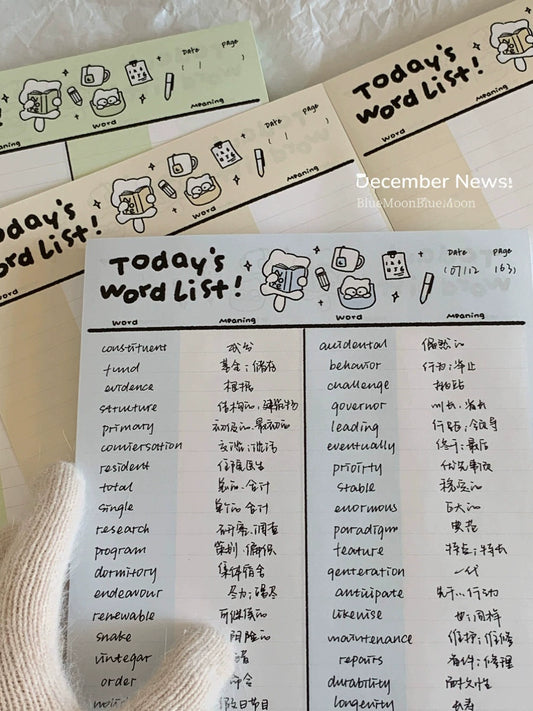 Date Page
Word Meaning
Today's
Word List!
Date Page
( / )
Word Meaning
Today's
Word List!
Date Page
( / )
Word Meaning
December News!
BlueMoonBlueMoon
Today's
Word List!
Date Page
(07/12 163)
Word Meaning Word Meaning
constituent 成分 accidental 偶然的
fund 基金；储存 behavior 行为；举止
evidence 根据 challenge 挑战
structure 结构的，建筑物 governor 州长，省长
primary 初级的，最初的 leading 行距；领导
conversation 交谈；谈话 eventually 终于；最后
resident 住院医生 priority 优先事项
total 总的，合计 stable 稳定的
single 单个的 enormous 巨大的
research 研究，调查 paradigm 典范
program 策划，编程 feature 特征；特长
dormitory 集体宿舍 generation 一代
endeavour 尽力；竭尽 anticipate
renewable 可继续的 likewise 也；同样
snake 阴险的 maintenance 维护；维修
vinegar repairs 备件；修理
order 命令 durability 耐久性
假日节目 longevity 长寿